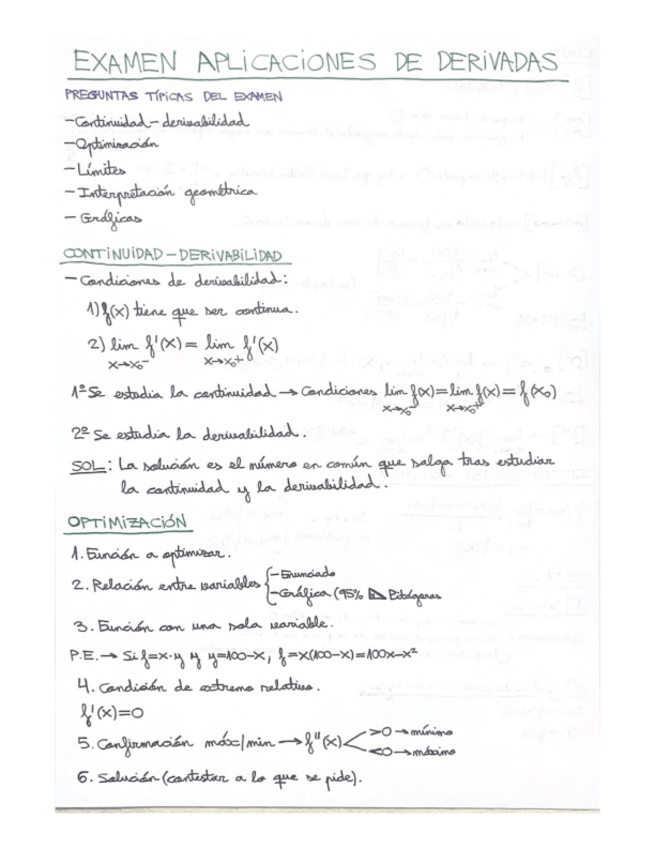 EXAMEN APLICACIONES DE DERIVADAS
PREGUNTAS TÍPICAS DEL EXAMEN
-Continuidad-derivabilidad
-Optimización
-Límites
-Interpretación geométrica
-Gráficas
CONTINUIDAD-DERIVABILIDAD
-Condiciones de derivabilidad:
1) f(x) tiene que ser continua.
2) lim f'(x) = lim f'(x)
x→x₀⁻ x→x₀⁺
1º Se estudia la continuidad → Condiciones lim f(x) = lim f(x) = f(x₀)
x→x₀⁻ x→x₀⁺
2º Se estudia la derivabilidad.
SOL: La solución es el número en común que salga tras estudiar
la continuidad y la derivabilidad.
OPTIMIZACIÓN
1. Función a optimizar.
2. Relación entre variables {-Enunciado
-Gráfica (95% Pitágoras
3. Función con una sola variable.
P.E. → Si f=x·y y y=100-x, f=x(100-x)=100x-x²
4. Condición de extremo relativo.
f'(x)=0
5. Confirmación máx/min → f''(x) >0 → mínimo
<0 → máximo
6. Solución (contestar a lo que se pide).